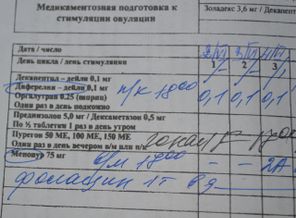 Медикаментозная подготовка к
стимуляции овуляции
Золадекс 3,6 мг / Декапептил
Дата / число
День цикла / день стимуляции 1 2 3
Декапептил – дейли 0,1 мг
Диферелин – дейли 0,1 мг п/к 18⁰⁰ 0,1 0,1 0,1
Оргалутран 0,25 (шприц)
Один раз в день подкожно
Преднизолон 5,0 мг / Дексаметазон 0,5 мг
По ½ таблетки 1 раз в день утром
Пурегон 50 МЕ, 100 МЕ, 150 МЕ
Один раз в день вечером в/м или п/к
Менопур 75 мг в/м 18⁰⁰ – – 2А
фолацин 1т